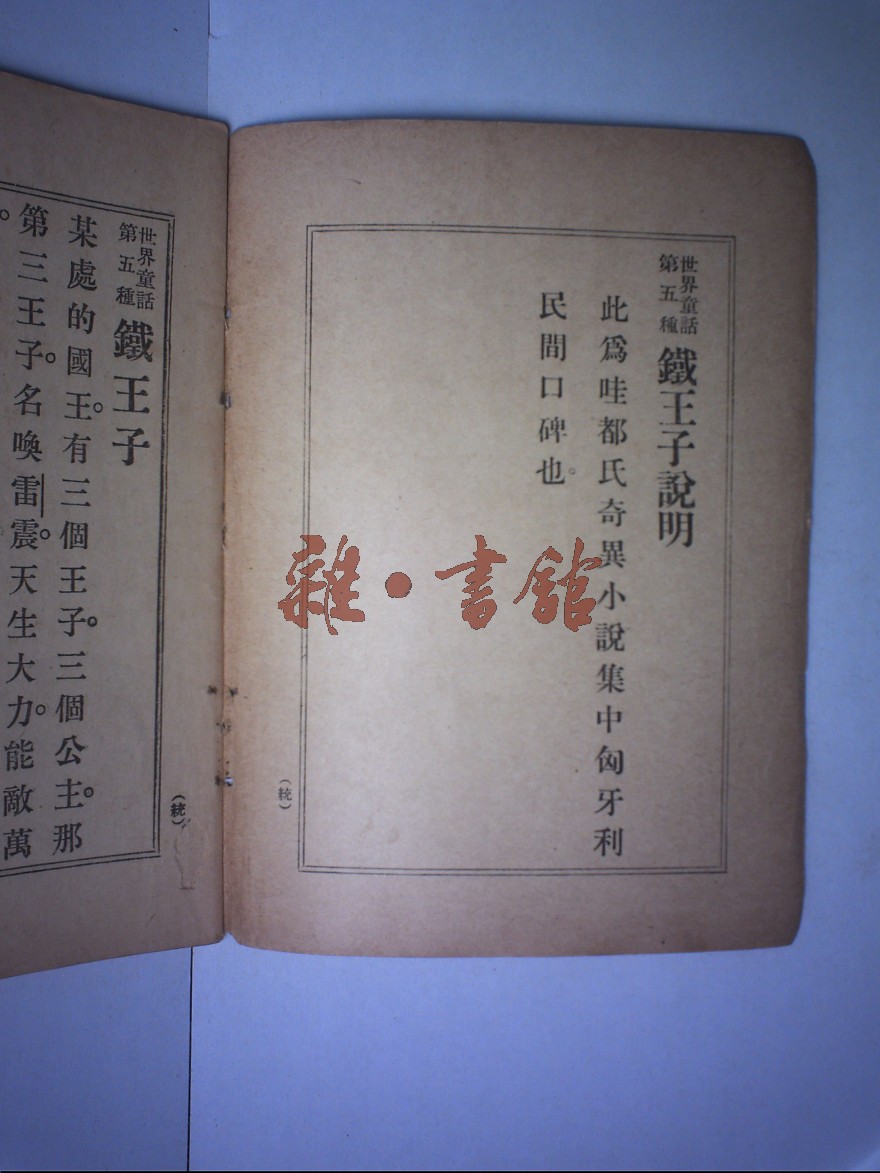 世界童話
第五種
鐵王子說明
此爲哇都氏奇異小說集中匈牙利
民間口碑也。
(統)
世界童話
第五種
鐵王子
某處的國王。有三個王子。三個公主。那
第三王子。名喚雷震。天生大力。能敵萬
(統)
雜·書館